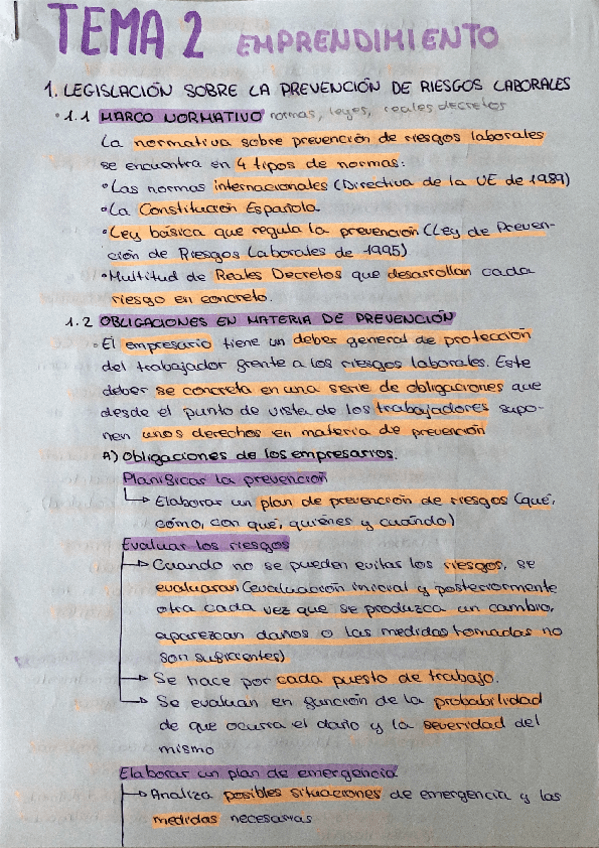 TEMA 2 EMPRENDIMIENTO
1. LEGISLACIÓN SOBRE LA PREVENCIÓN DE RIESGOS LABORALES
• 1.1 MARCO NORMATIVO normas, leyes, reales decretos
La normativa sobre prevención de riesgos laborales
se encuentra en 4 tipos de normas:
• Las normas internacionales (Directiva de la UE de 1989)
• La Constitución Española.
• Ley básica que regula la prevención (Ley de Preven-
ción de Riesgos Laborales de 1995)
• Multitud de Reales Decretos que desarrollan cada
riesgo en concreto.
1.2 OBLIGACIONES EN MATERIA DE PREVENCIÓN
• El empresario tiene un deber general de protección
del trabajador frente a los riesgos laborales. Este
deber se concreta en una serie de obligaciones que
desde el punto de vista de los trabajadores supo-
nen unos derechos en materia de prevención
A) Obligaciones de los empresarios.
Planificar la prevención
↳ Elaborar un plan de prevención de riesgos (qué,
cómo, con qué, quiénes y cuándo)
Evaluar los riesgos
→ Cuando no se pueden evitar los riesgos, se
evaluaran (evaluación inicial y posteriormente
otra cada vez que se produzca un cambio,
aparezcan daños o las medidas tomadas no
son suficientes)
→ Se hace por cada puesto de trabajo.
→ Se evaluan en función de la probabilidad
de que ocurra el daño y la severidad del
mismo
Elaborar un plan de emergencia
→ Analiza posibles situaciones de emergencia y las
medidas necesarias